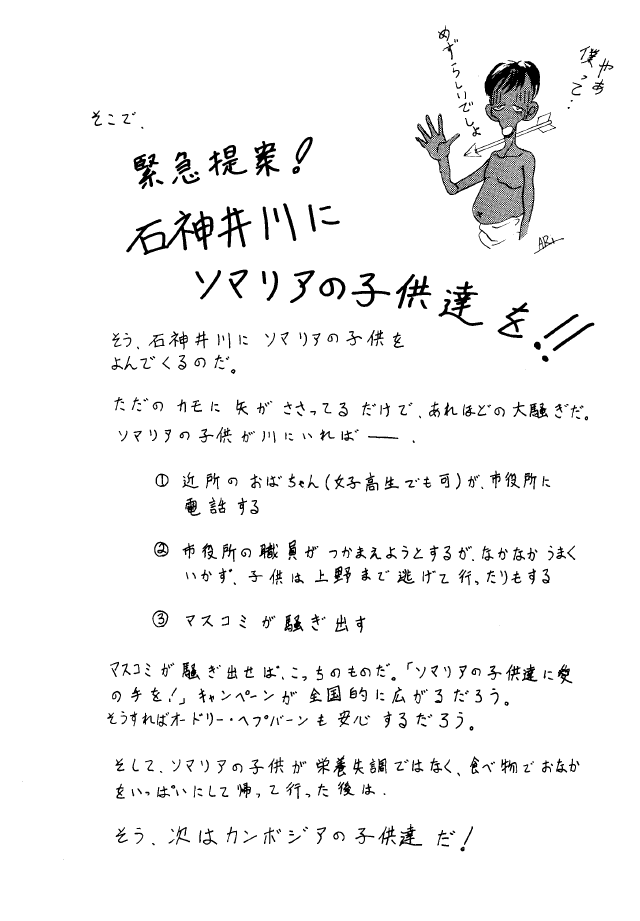 やぁ
僕って‥
めずらしいでしょ
そこで、
緊急提案!
石神井川に
ソマリアの子供達を!!
そう、石神井川に ソマリアの子供を
よんでくるのだ。
ただの カモに 矢が ささってる だけで、あれほどの 大騒ぎだ。
ソマリアの子供が川にいれば ――.
① 近所の おばちゃん(女子高生でも可)が、市役所に
電話する
② 市役所の職員が つかまえようとするが、なかなか うまく
いかず、子供は 上野まで 逃げて 行ったりもする
③ マスコミが 騒ぎ出す
マスコミが 騒ぎ出せば、こっちのものだ。「ソマリアの子供達に愛
の手を!」キャンペーンが 全国的に広がるだろう。
そうすればオードリー・ヘプバーンも 安心 するだろう。
そして、ソマリアの子供が 栄養失調ではなく、食べ物で おなか
をいっぱいにして 帰って 行った 後は、
そう、次はカンボジアの子供達 だ!